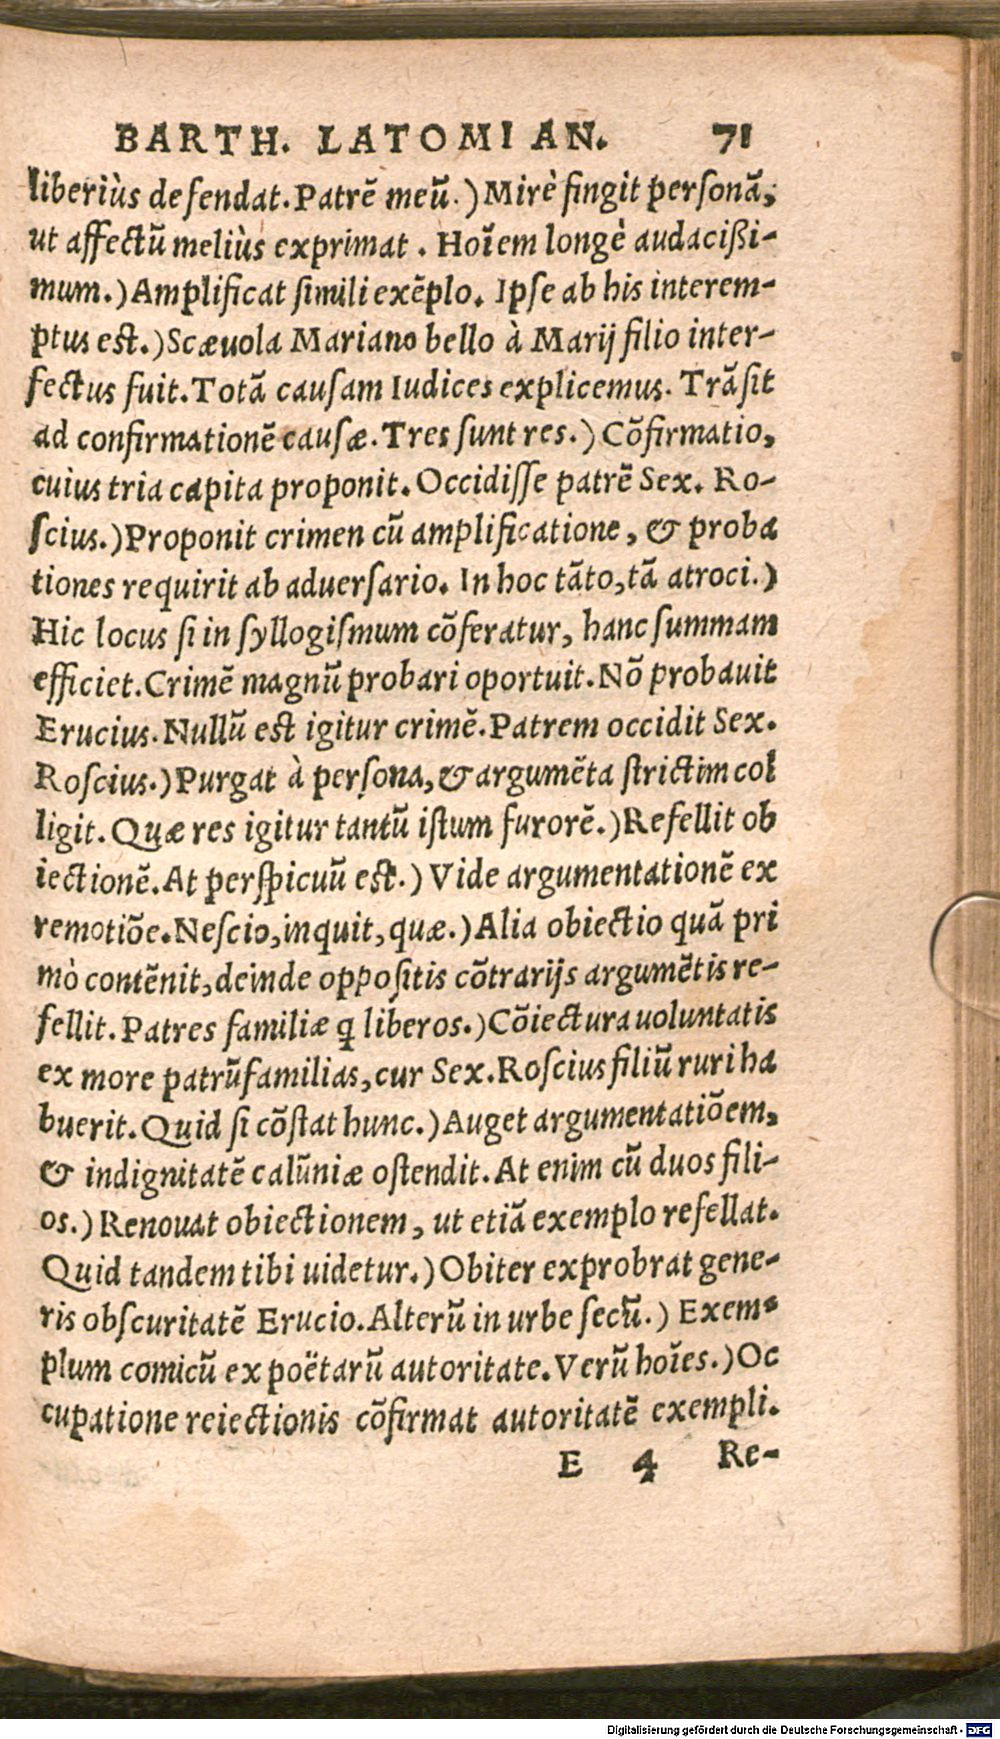 BARTH. LATOMI AN. 71
liberiùs defendat. Patrē meū.) Mirè fingit personā,
ut affectū meliùs exprimat. Hoīem longè audacißi-
mum.) Amplificat simili exēplo. Ipse ab his interem-
ptus est.) Scæuola Mariano bello à Marij filio inter-
fectus fuit. Totā causam Iudices explicemus. Trāsit
ad confirmationē causæ. Tres sunt res.) Cōfirmatio,
cuius tria capita proponit. Occidisse patrē Sex. Ro-
scius.) Proponit crimen cū amplificatione, & proba
tiones requirit ab aduersario. In hoc tāto, tā atroci.)
Hic locus si in syllogismum cōferatur, hanc summam
efficiet. Crimē magnū probari oportuit. Nō probauit
Erucius. Nullū est igitur crimē. Patrem occidit Sex.
Roscius.) Purgat à persona, & argumēta strictim col
ligit. Quæ res igitur tantū istum furorē.) Refellit ob
iectionē. At perspicuū est.) Vide argumentationē ex
remotiōe. Nescio, inquit, quæ.) Alia obiectio quā pri
mò contēnit, deinde oppositis cōtrarijs argumētis re-
fellit. Patres familiæ q liberos.) Cōiectura uoluntatis
ex more patrūfamilias, cur Sex. Roscius filiū ruri ha
buerit. Quid si cōstat hunc.) Auget argumentatiōem,
& indignitatē calūniæ ostendit. At enim cū duos fili-
os.) Renouat obiectionem, ut etiā exemplo refellat.
Quid tandem tibi uidetur.) Obiter exprobrat gene-
ris obscuritatē Erucio. Alterū in urbe secū.) Exem-
plum comicū ex poëtarū autoritate. Verū hoīes.) Oc
cupatione reiectionis cōfirmat autoritatē exempli.
E 4 Re-
Digitalisierung gefördert durch die Deutsche Forschungsgemeinschaft - DFG